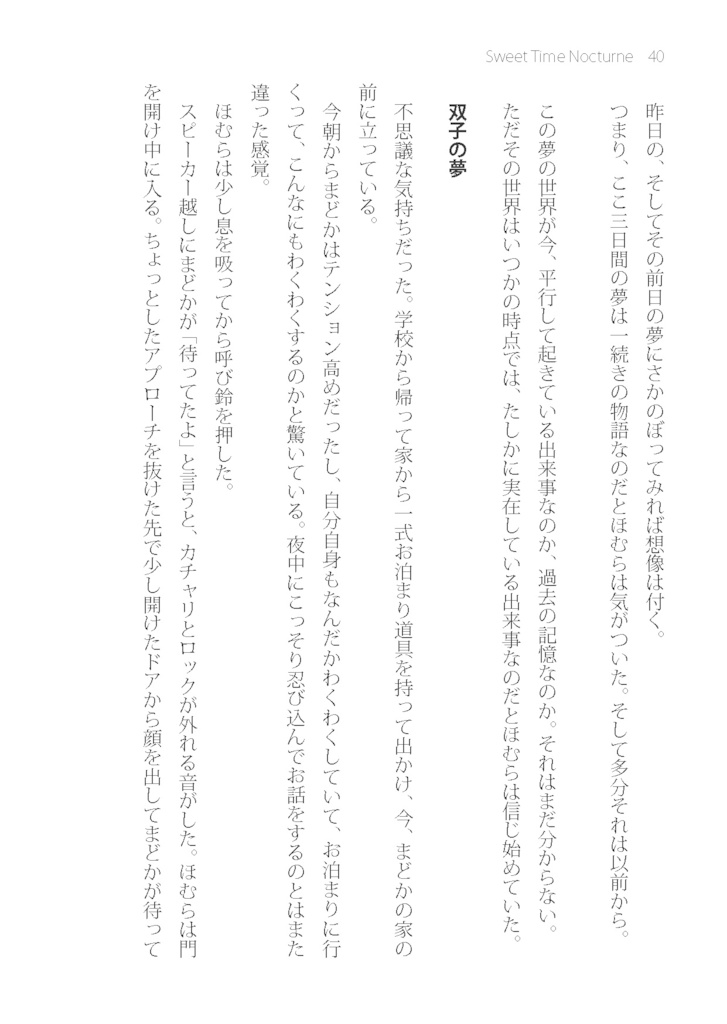 Sweet Time Nocturne 40
昨日の、そしてその前日の夢にさかのぼってみれば想像は付く。
つまり、ここ三日間の夢は一続きの物語なのだとほむらは気がついた。そして多分それは以前から。
この夢の世界が今、平行して起きている出来事なのか、過去の記憶なのか。それはまだ分からない。
ただその世界はいつかの時点では、たしかに実在している出来事なのだとほむらは信じ始めていた。
双子の夢
不思議な気持ちだった。学校から帰って家から一式お泊まり道具を持って出かけ、今、まどかの家の
前に立っている。
今朝からまどかはテンション高めだったし、自分自身もなんだかわくわくしていて、お泊まりに行
くって、こんなにもわくわくするのかと驚いている。夜中にこっそり忍び込んでお話をするのとはまた
違った感覚。
ほむらは少し息を吸ってから呼び鈴を押した。
スピーカー越しにまどかが「待ってたよ」と言うと、カチャリとロックが外れる音がした。ほむらは門
を開け中に入る。ちょっとしたアプローチを抜けた先で少し開けたドアから顔を出してまどかが待って